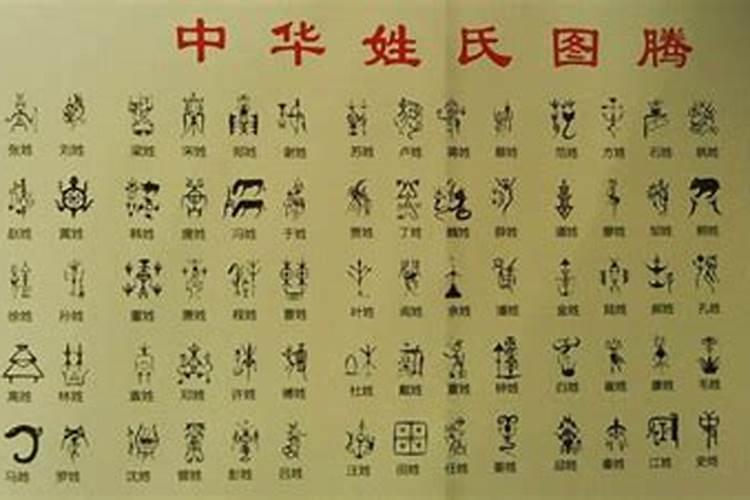 中华姓氏图腾
张姓 刘姓 梁姓 宋姓 郑姓 谢姓 苏姓 卢姓 蒋姓 蔡姓 范姓 方姓 石姓 姚姓
赵姓 黄姓 韩姓 唐姓 冯姓 于姓 贾姓 丁姓 魏姓 薛姓 谭姓 廖姓 邹姓 熊姓
徐姓 孙姓 董姓 萧姓 程姓 曹姓 叶姓 阎姓 余姓 潘姓 金姓 陆姓 郝姓 孔姓
高姓 林姓 袁姓 邓姓 许姓 傅姓 杜姓 戴姓 夏姓 钟姓 白姓 崔姓 康姓 毛姓
马姓 罗姓 沈姓 曾姓 彭姓 吕姓 汪姓 田姓 任姓 姜姓 邱姓 秦姓 江姓 史姓